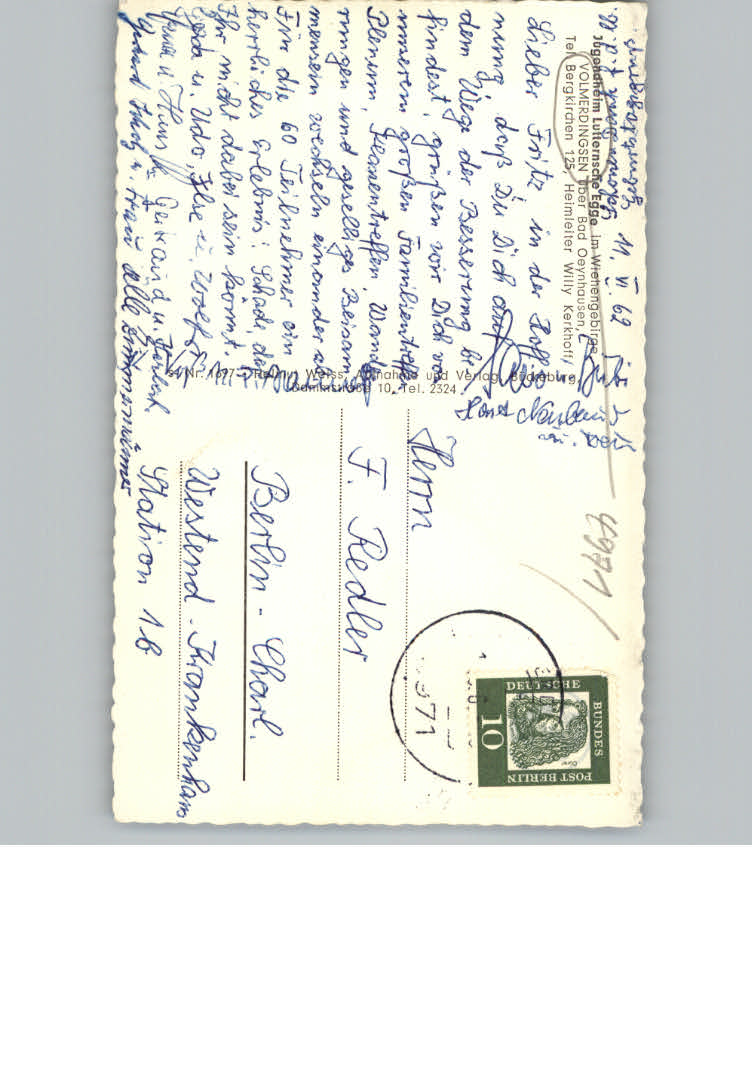 Jugendheim Lutternsche Egge im Wiehengebirge
VOLMERDINGSEN über Bad Oeynhausen,
Tel. Bergkirchen 125, Heimleiter Willy Kerkhoff
11. VI. 62
Lieber Fritz in der Hoff-
nung, daß Du Dich auf
dem Wege der Besserung be-
findest, grüßen wir Dich von
unserem großen Familientreffen.
Plenum, Frauentreffen, Wande-
rungen und geselliges Beisam-
mensein wechseln einander ab.
Für die 60 Teilnehmer ein
herrliches Erlebnis! Schade, daß
Ihr nicht dabei sein könnt.
u. Udo, Ilse u. Wolf
u. Hans Gerhard u.
u. Frau
Hans Neubau
Weiss, Aufnahme und Verlag, Bückeburg,
Dammstraße 10, Tel. 2324
4971
Herrn
F. Redler
Berlin - Charl.
Westend-Krankenhaus
Station 1b
971
DEUTSCHE
BUNDES
POST BERLIN
10